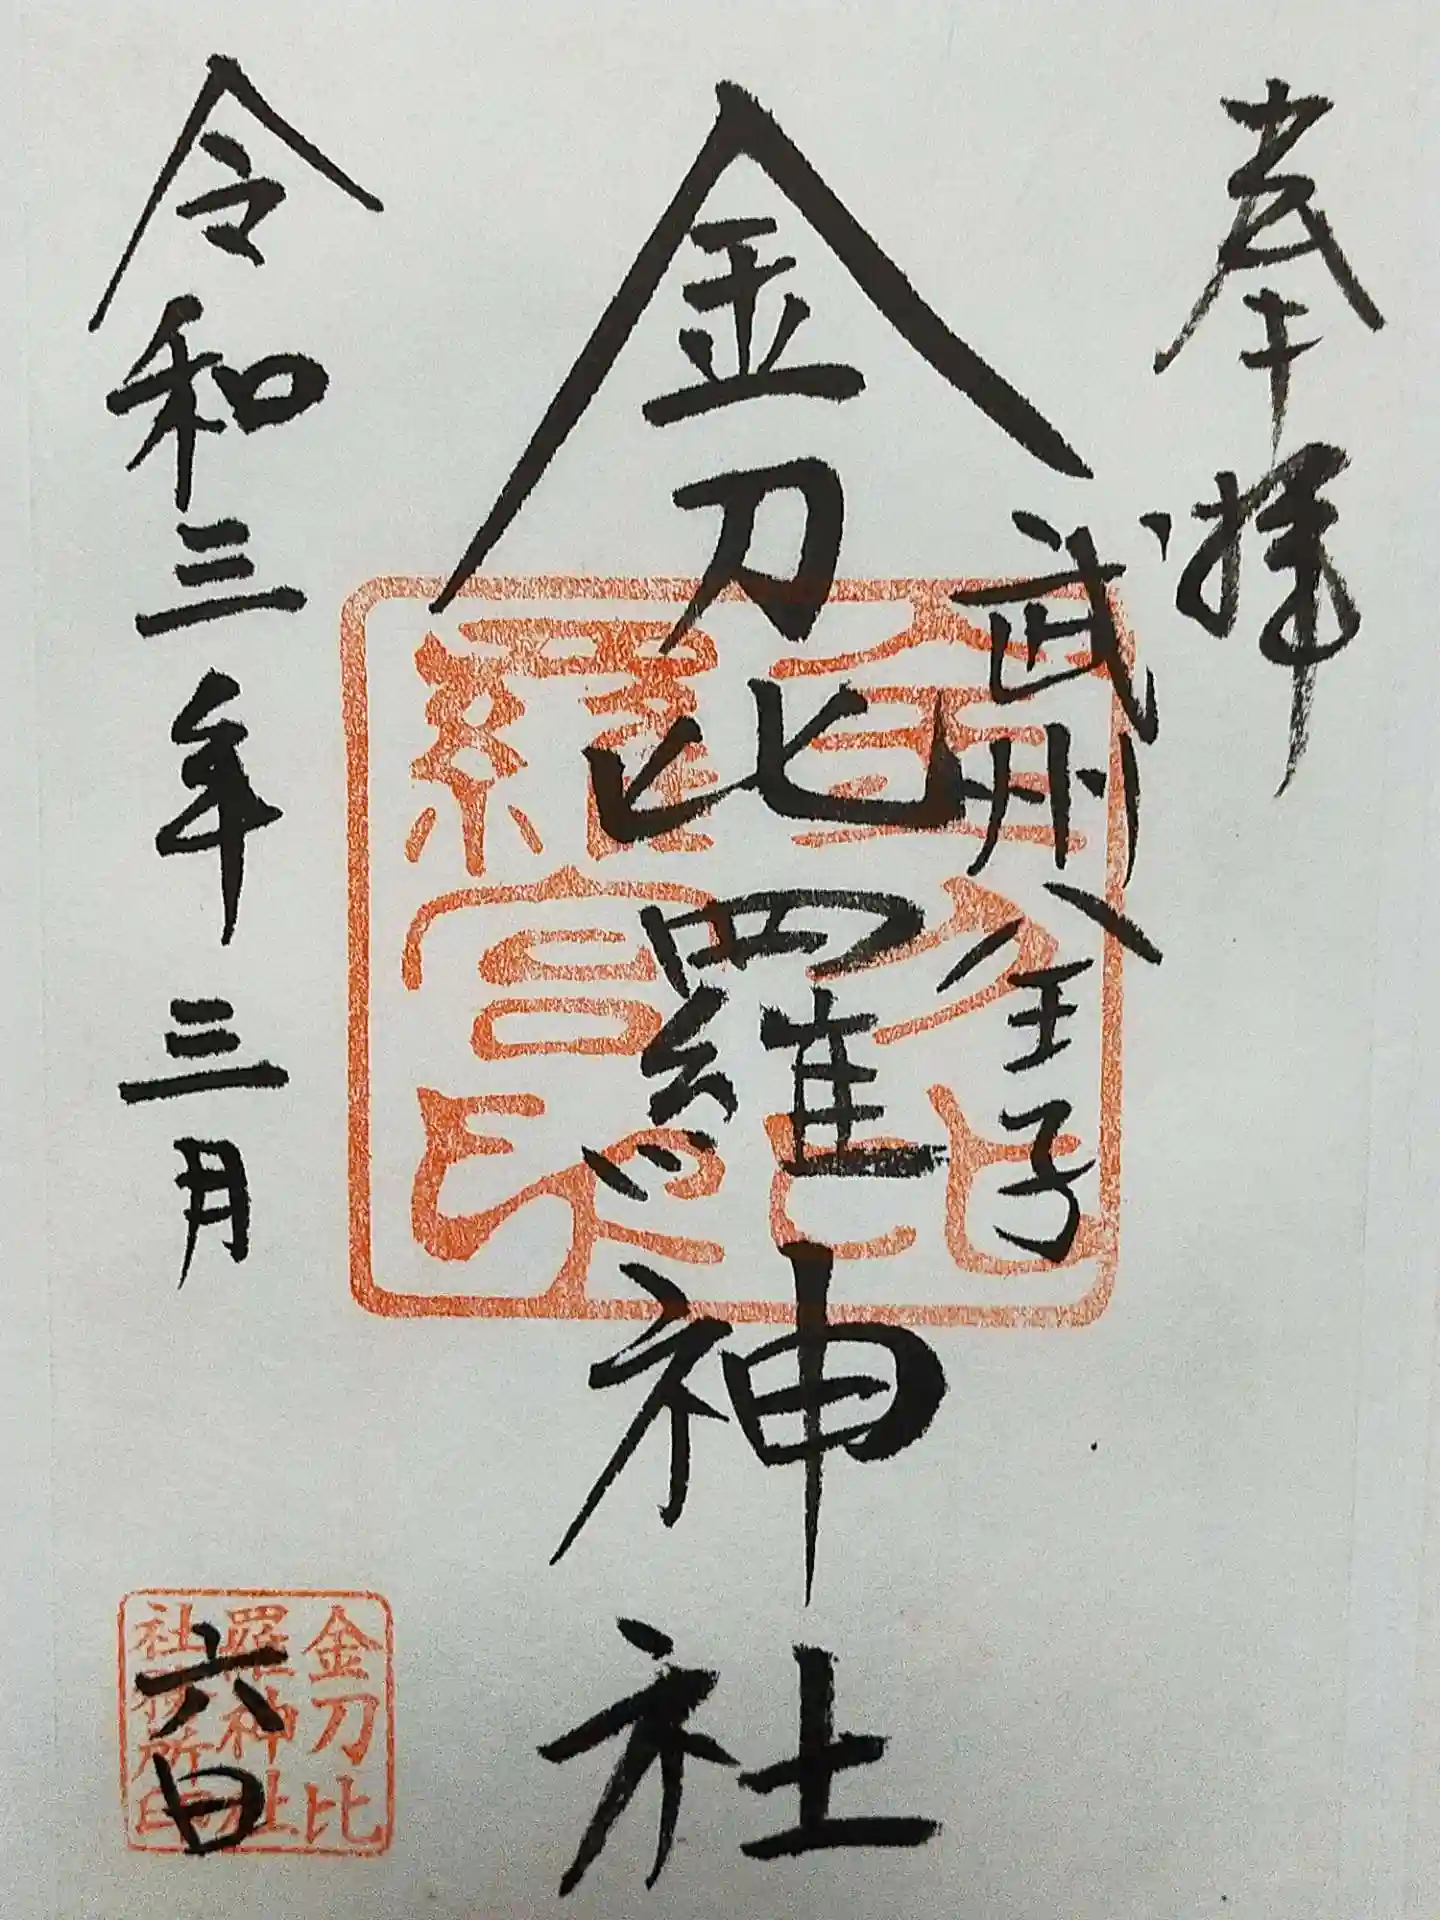 奉拝
武州八王子
金刀比羅神社
令和三年三月六日
金刀比
羅宮印
金刀比
羅神社
社務所印